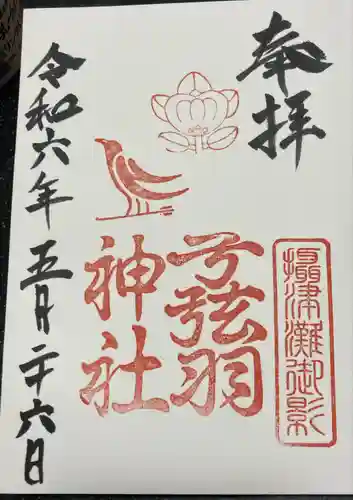 奉拝
摂津灘御影
弓弦羽
神社
令和六年五月二十六日